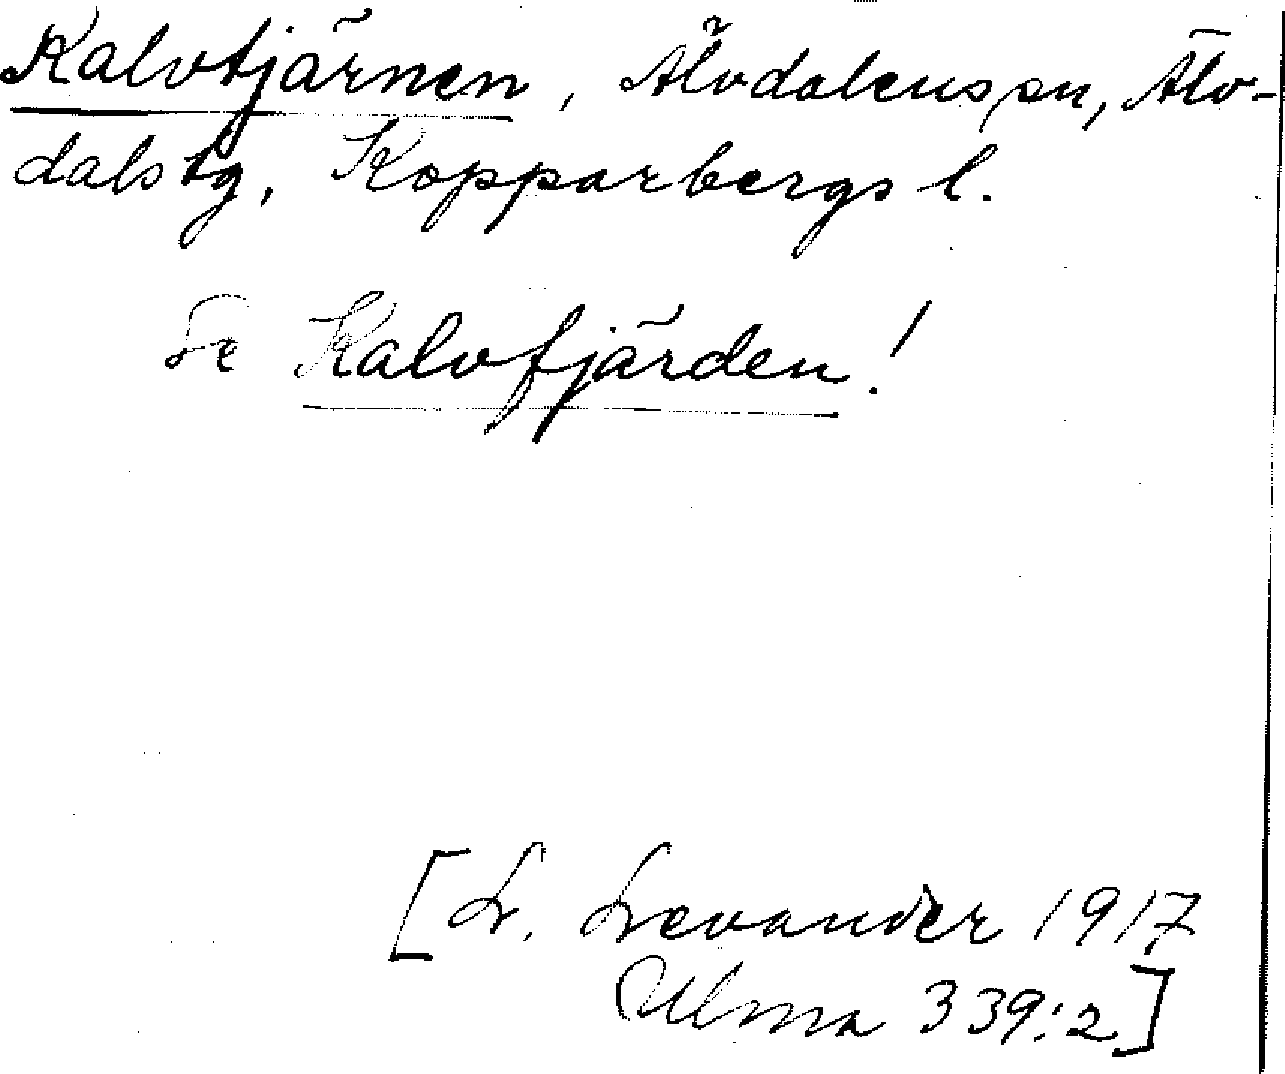 Kalvtjärnen, Älvdalens sn, Älv-
dals tg, Kopparbergs l.
Se Kalvfjärden!
[L. Levander 1917
Ulma 339:2]